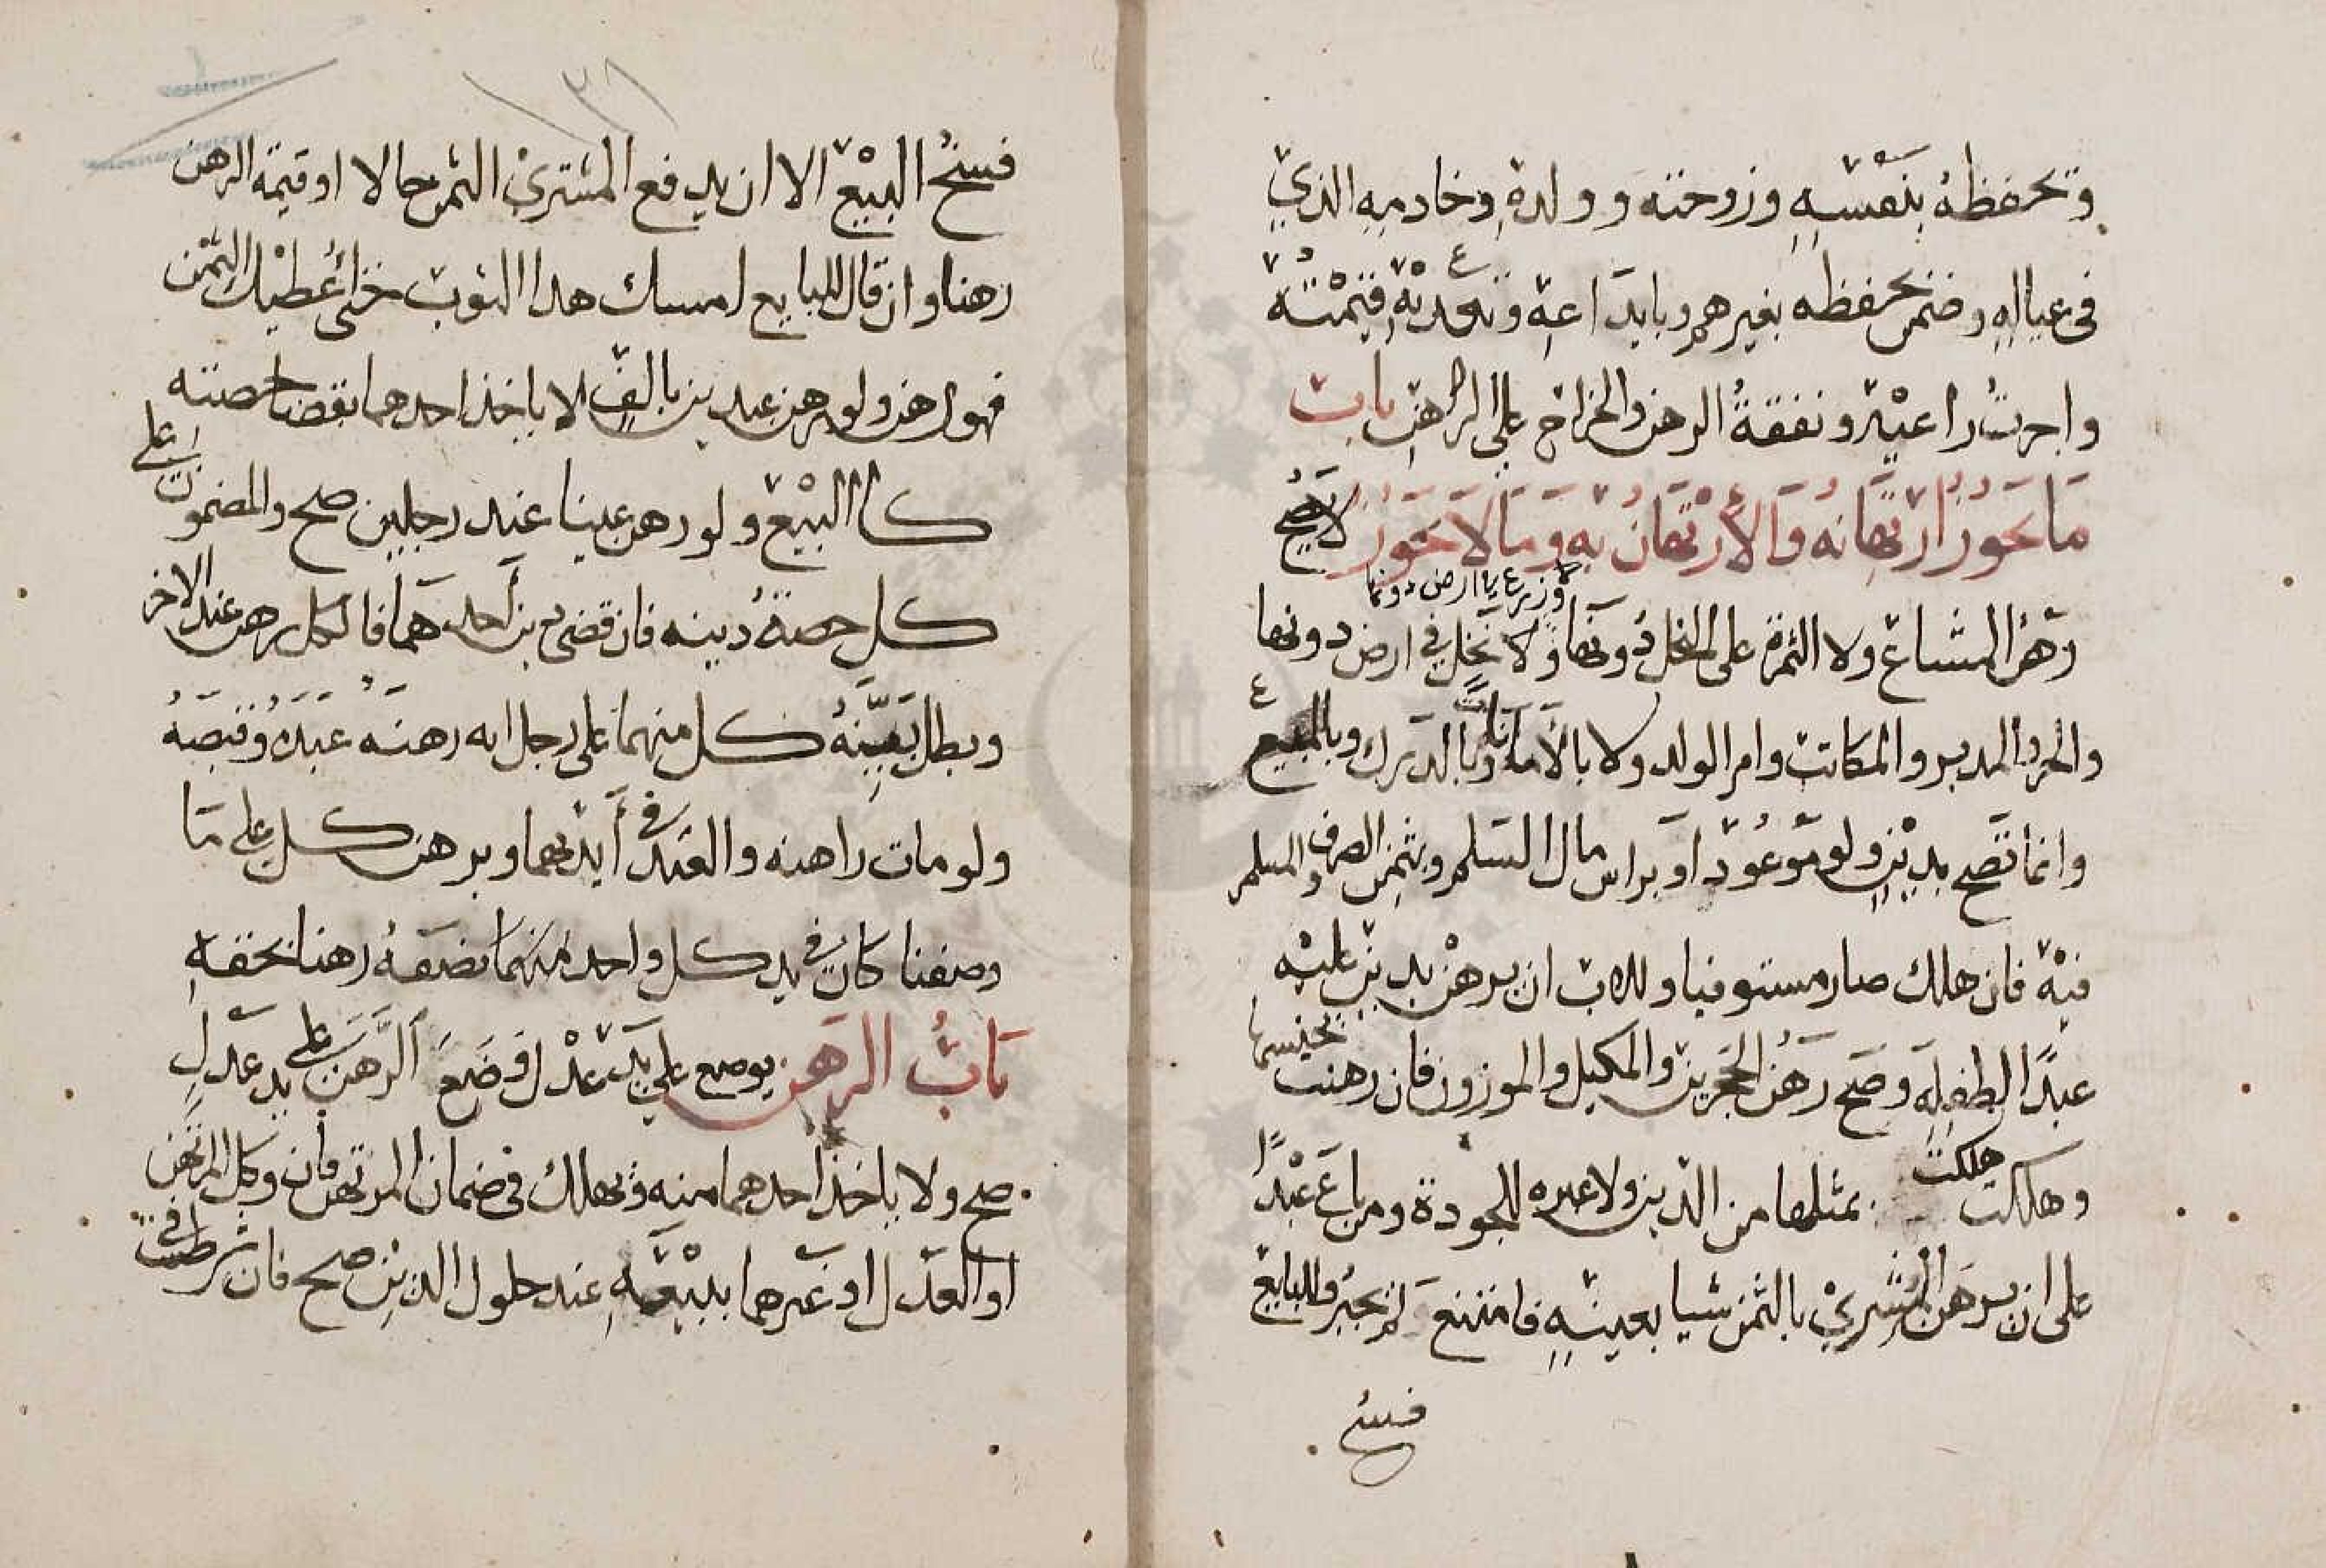 وتحفظه بنفسه وزوجته وولده وخادمه الذي
في عياله وضمن بحفظه بغيرهم وبايداعه وتعديه قيمته
واجرت راعيه ونفقة الرهن والخراج على الراهن باب
ما يجوز ارتهانه والارتهان به وما لا يجوز لا يصح
رهن المشاع ولا الثمرة على النخل دونها ولا نخل في ارض دونها
وزرع بارض دونها
والحر والمدبر والمكاتب وام الولد ولا بالامانات وبالدرك وبالمبيع
وانما تصح بدين ولو موعود او براس مال السلم وبثمن الصرف والمسلم
فيه فان هلك صار مستوفيا وللاب ان يرهن بدين عليه
عبدا لطفله وصح رهن الحجرين والمكيل والموزون فان رهنت بجنسها
وهلكت هلكت بمثلها من الدين ولا عبره للجودة ومن باع عبدا
على ان يرهن المشتري بالثمن شيا بعينه فامتنع لم يجبر وللبايع
فسخ
١٣٨
فسخ البيع الا ان يدفع المشتري الثمن حالا او قيمة الرهن
رهنا وان قال للبايع امسك هدا الثوب حتى اعطيك الثمن
فهو رهن ولو رهن عبدين بالف لا ياخذ احدهما بقضا حصته
كالبيع ولو رهن عينا عند رجلين صح والمضمون على
كل حصة دينه فان قضى دين احدهما فالكل رهن عند الاخر
وبطل بينة كل منهما على رجل انه رهنه عبده وقبضه
ولو مات راهنه والعبد في أيديهما وبرهن كل على ما
وصفنا كان في يد كل واحد منهما نصفه رهنا بحقه
باب الرهن يوضع على يد عدل وضع الرهن على يد عدل
صح ولا ياخذ احدهما منه وتهلك في ضمان المرتهن فان وكل المرتهن
او العدل او غيرهما ببيعه عند حلول الدين صح فان شرطت في